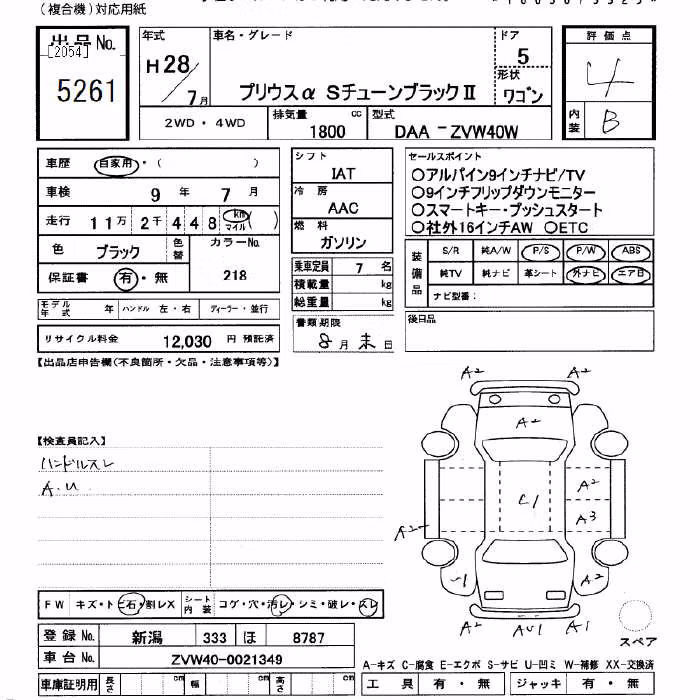 (複合機)対応用紙
出品 No.
[2054]
5261
年式
H28/7月
車名・グレード
プリウスα SチューンブラックⅡ
ドア
5
形状
ワゴン
評価点
4
内装
B
2WD・4WD
排気量
1800 cc
型式
DAA -ZVW40W
車歴 自家用・( )
車検 9 年 7 月
走行 11万 2千 448 km マイル ( )
色 ブラック 色替 カラーNo. 218
保証書 有・無
モデル年式 年 ハンドル 左・右 ディーラー・並行
リサイクル料金 12,030 円 預託済
シフト
IAT
冷房
AAC
燃料
ガソリン
乗車定員 7 名
積載量 kg
総重量 kg
書類期限
8月末日
セールスポイント
○アルパイン9インチナビ/TV
○9インチフリップダウンモニター
○スマートキー・プッシュスタート
○社外16インチAW ○ETC
装備品
S/R 純A/W P/S P/W ABS
純TV 純ナビ 革シート 外ナビ エアB
ナビ型番:
後日品
【出品店申告欄(不良箇所・欠品・注意事項等)】
【検査員記入】
ハンドルスレ
A.U
A2 A2
A2
A2
C1
A3
A2
U1
A2
A2 AU1 A1
スペア
FW キズ・トビ石・割レX シート内装 コゲ・穴・汚レ・シミ・破レ・スレ
登録 No. 新潟 333 ほ 8787
車台 No. ZVW40-0021349
車庫証明用 長さ cm 幅 cm 高さ cm
A-キズ C-腐食 E-エクボ S-サビ U-凹ミ W-補修 XX-交換済
工具 有・無 ジャッキ 有・無